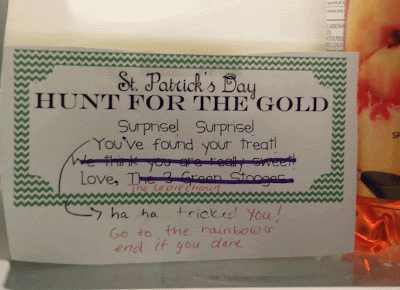 St. Patrick's Day
HUNT FOR THE GOLD
Surprise! Surprise!
You've found your treat!
We think you are really sweet!
Love, The 3 Green Stooges
The Leprechaun
ha ha tricked you!
Go to the rainbow's
end if you dare